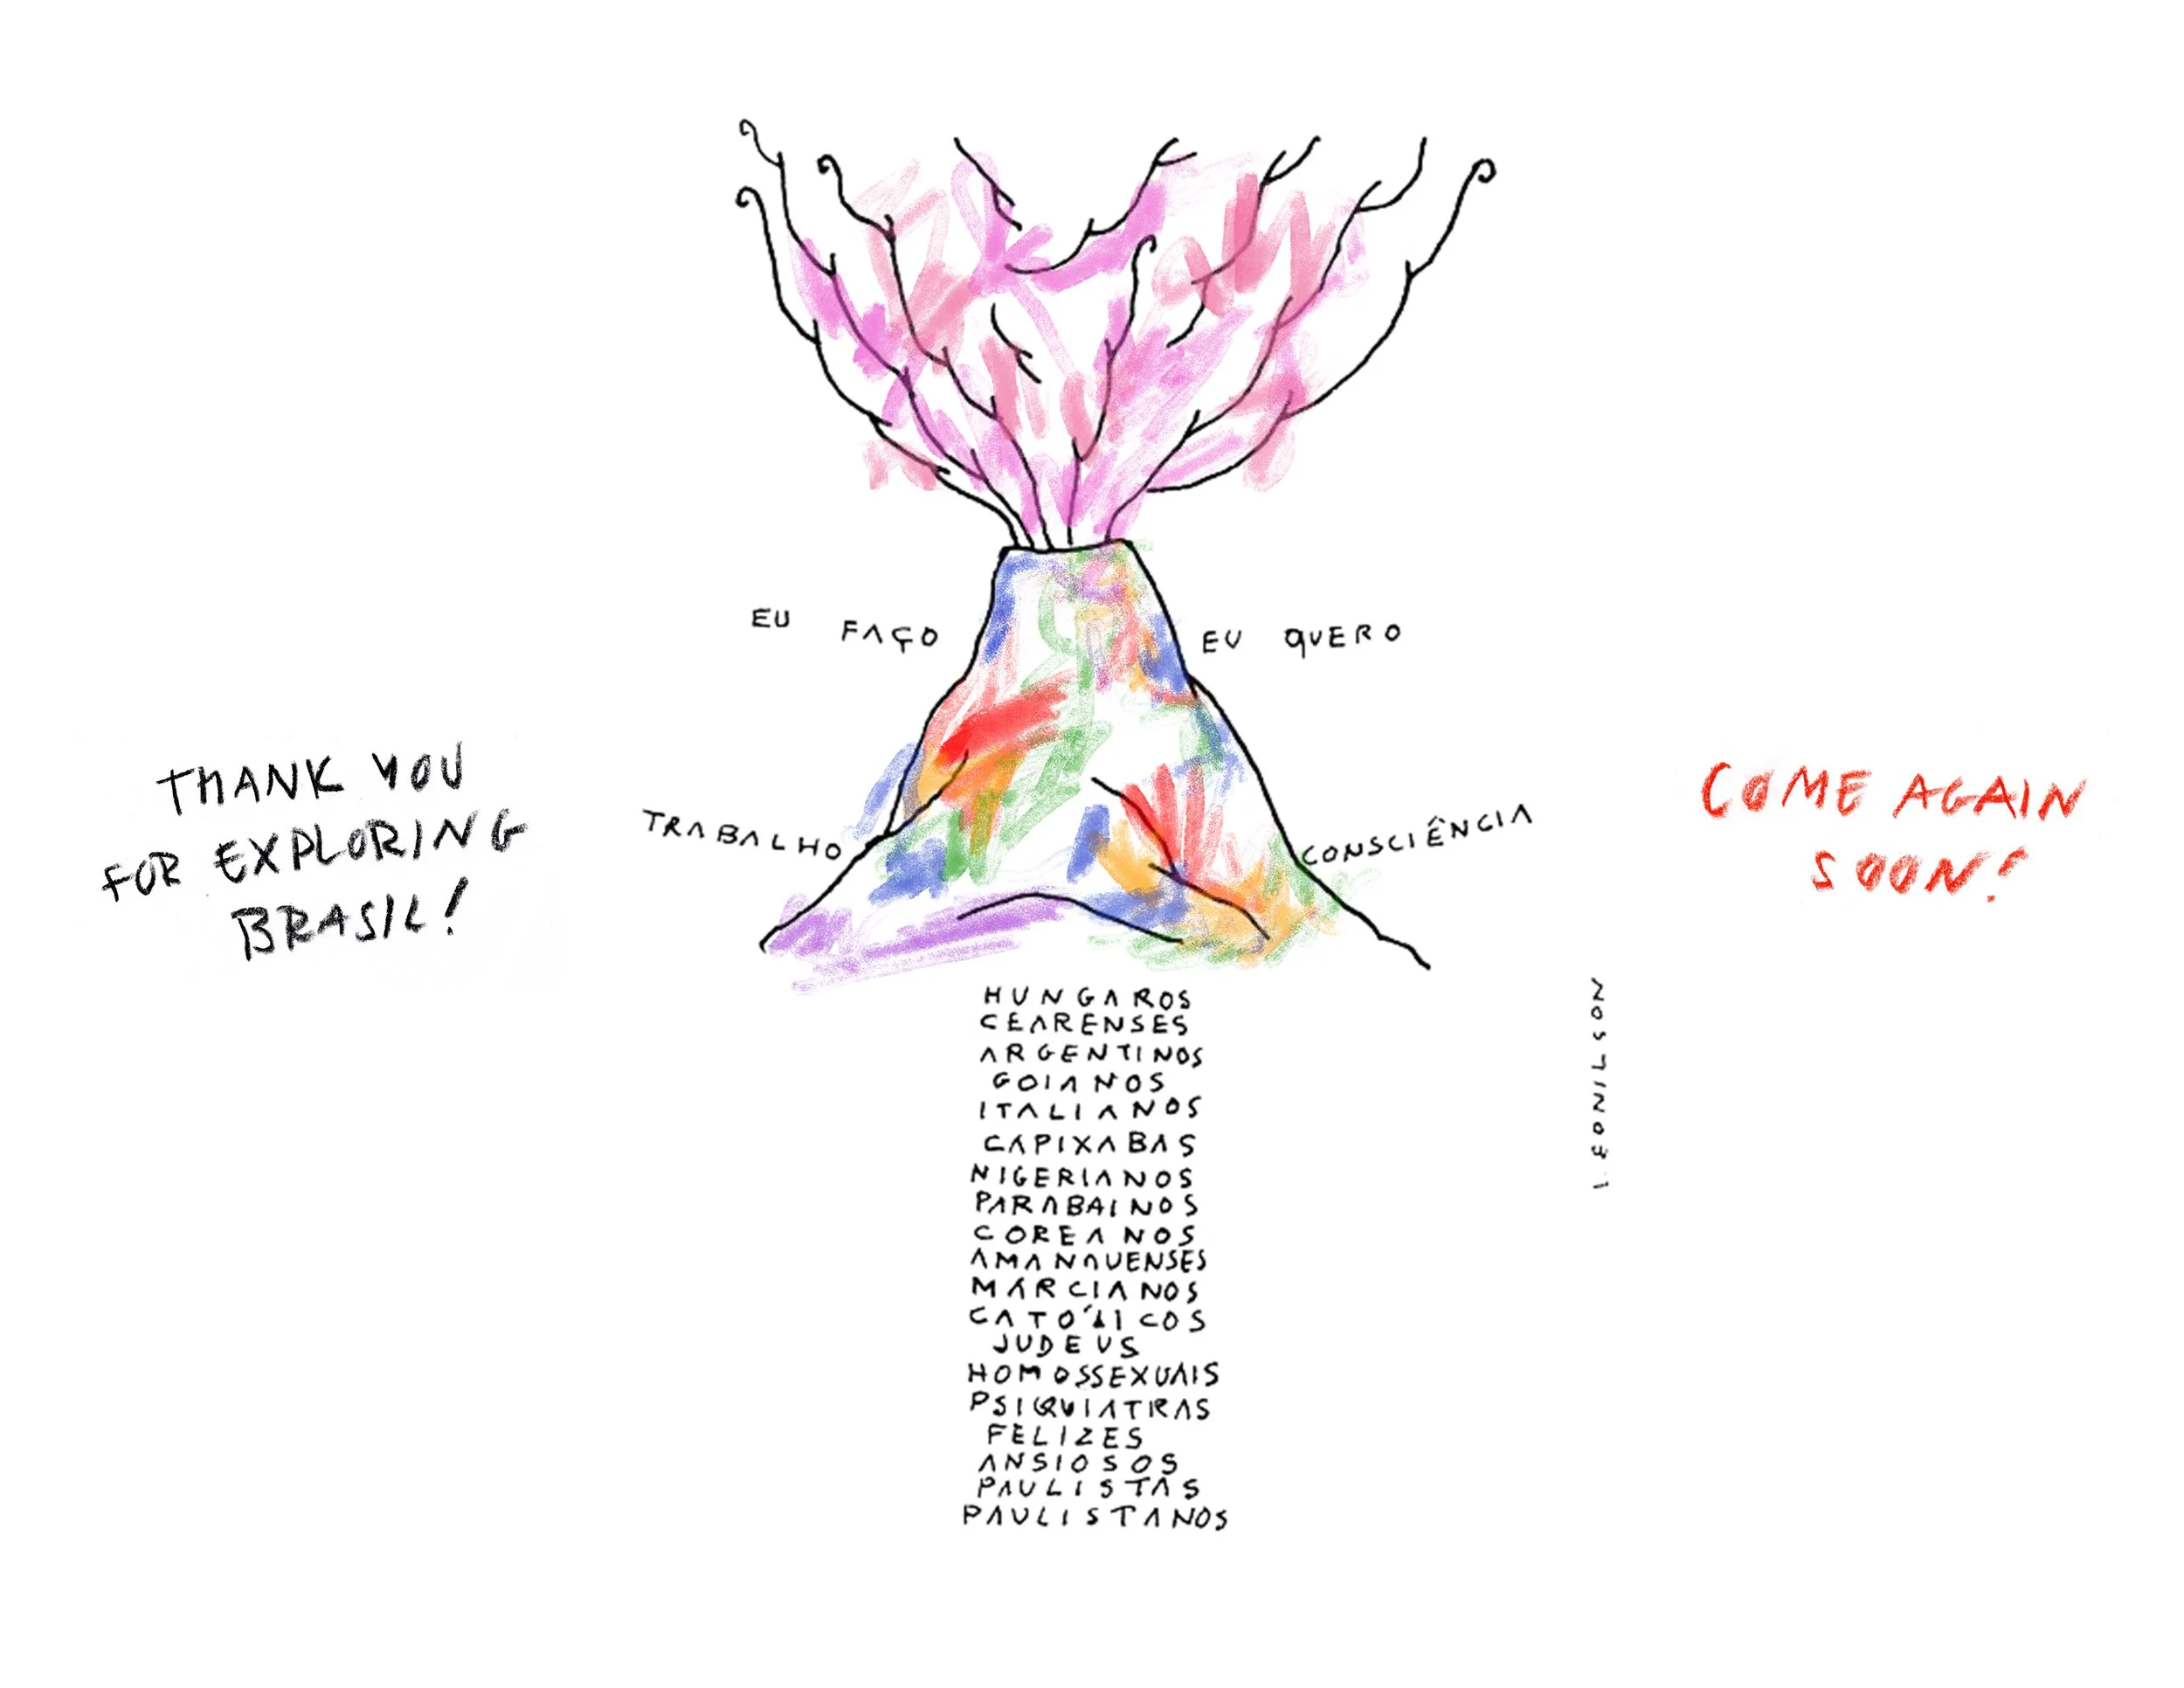 EU FAÇO
EU QUERO
THANK YOU
FOR EXPLORING
BRASIL!
TRABALHO
CONSCIÊNCIA
COME AGAIN
SOON!
HUNGAROS
CEARENSES
ARGENTINOS
GOIANOS
ITALIANOS
CAPIXABAS
NIGERIANOS
PARABAINOS
COREANOS
AMANAUENSES
MARCIANOS
CATÓLICOS
JUDEUS
HOMOSSEXUAIS
PSIQUIATRAS
FELIZES
ANSIOSOS
PAULISTAS
PAULISTANOS